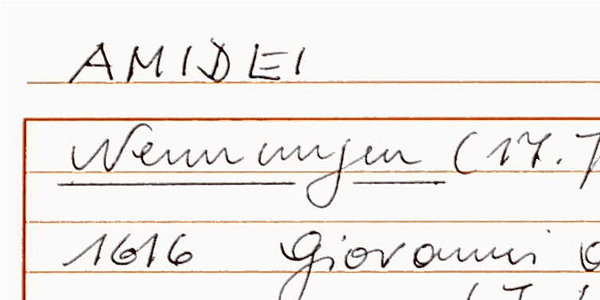 AMIDEI
Nennungen (17.
1616 Giovanni